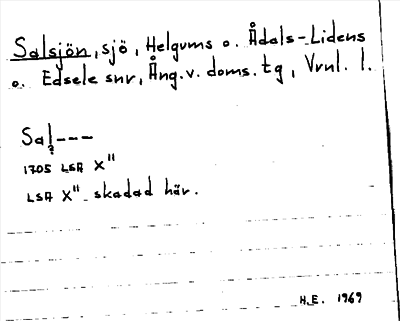 Salsjön, sjö, Helgums o. Ådals-Lidens
o. Edsele snr, Ång. v. doms. tg, Vrnl. l.
Sal---
?
1705 LSA X"
LSA X" skadad här.
H.E. 1969